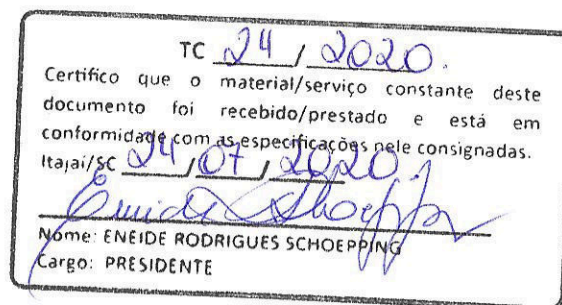 TC 24 / 2020.
Certifico que o material/serviço constante deste
documento foi recebido/prestado e está em
conformidade com as especificações nele consignadas.
Itajaí/SC 24 / 07 / 2020.
Eneide Schoepping
Nome: ENEIDE RODRIGUES SCHOEPPING
Cargo: PRESIDENTE